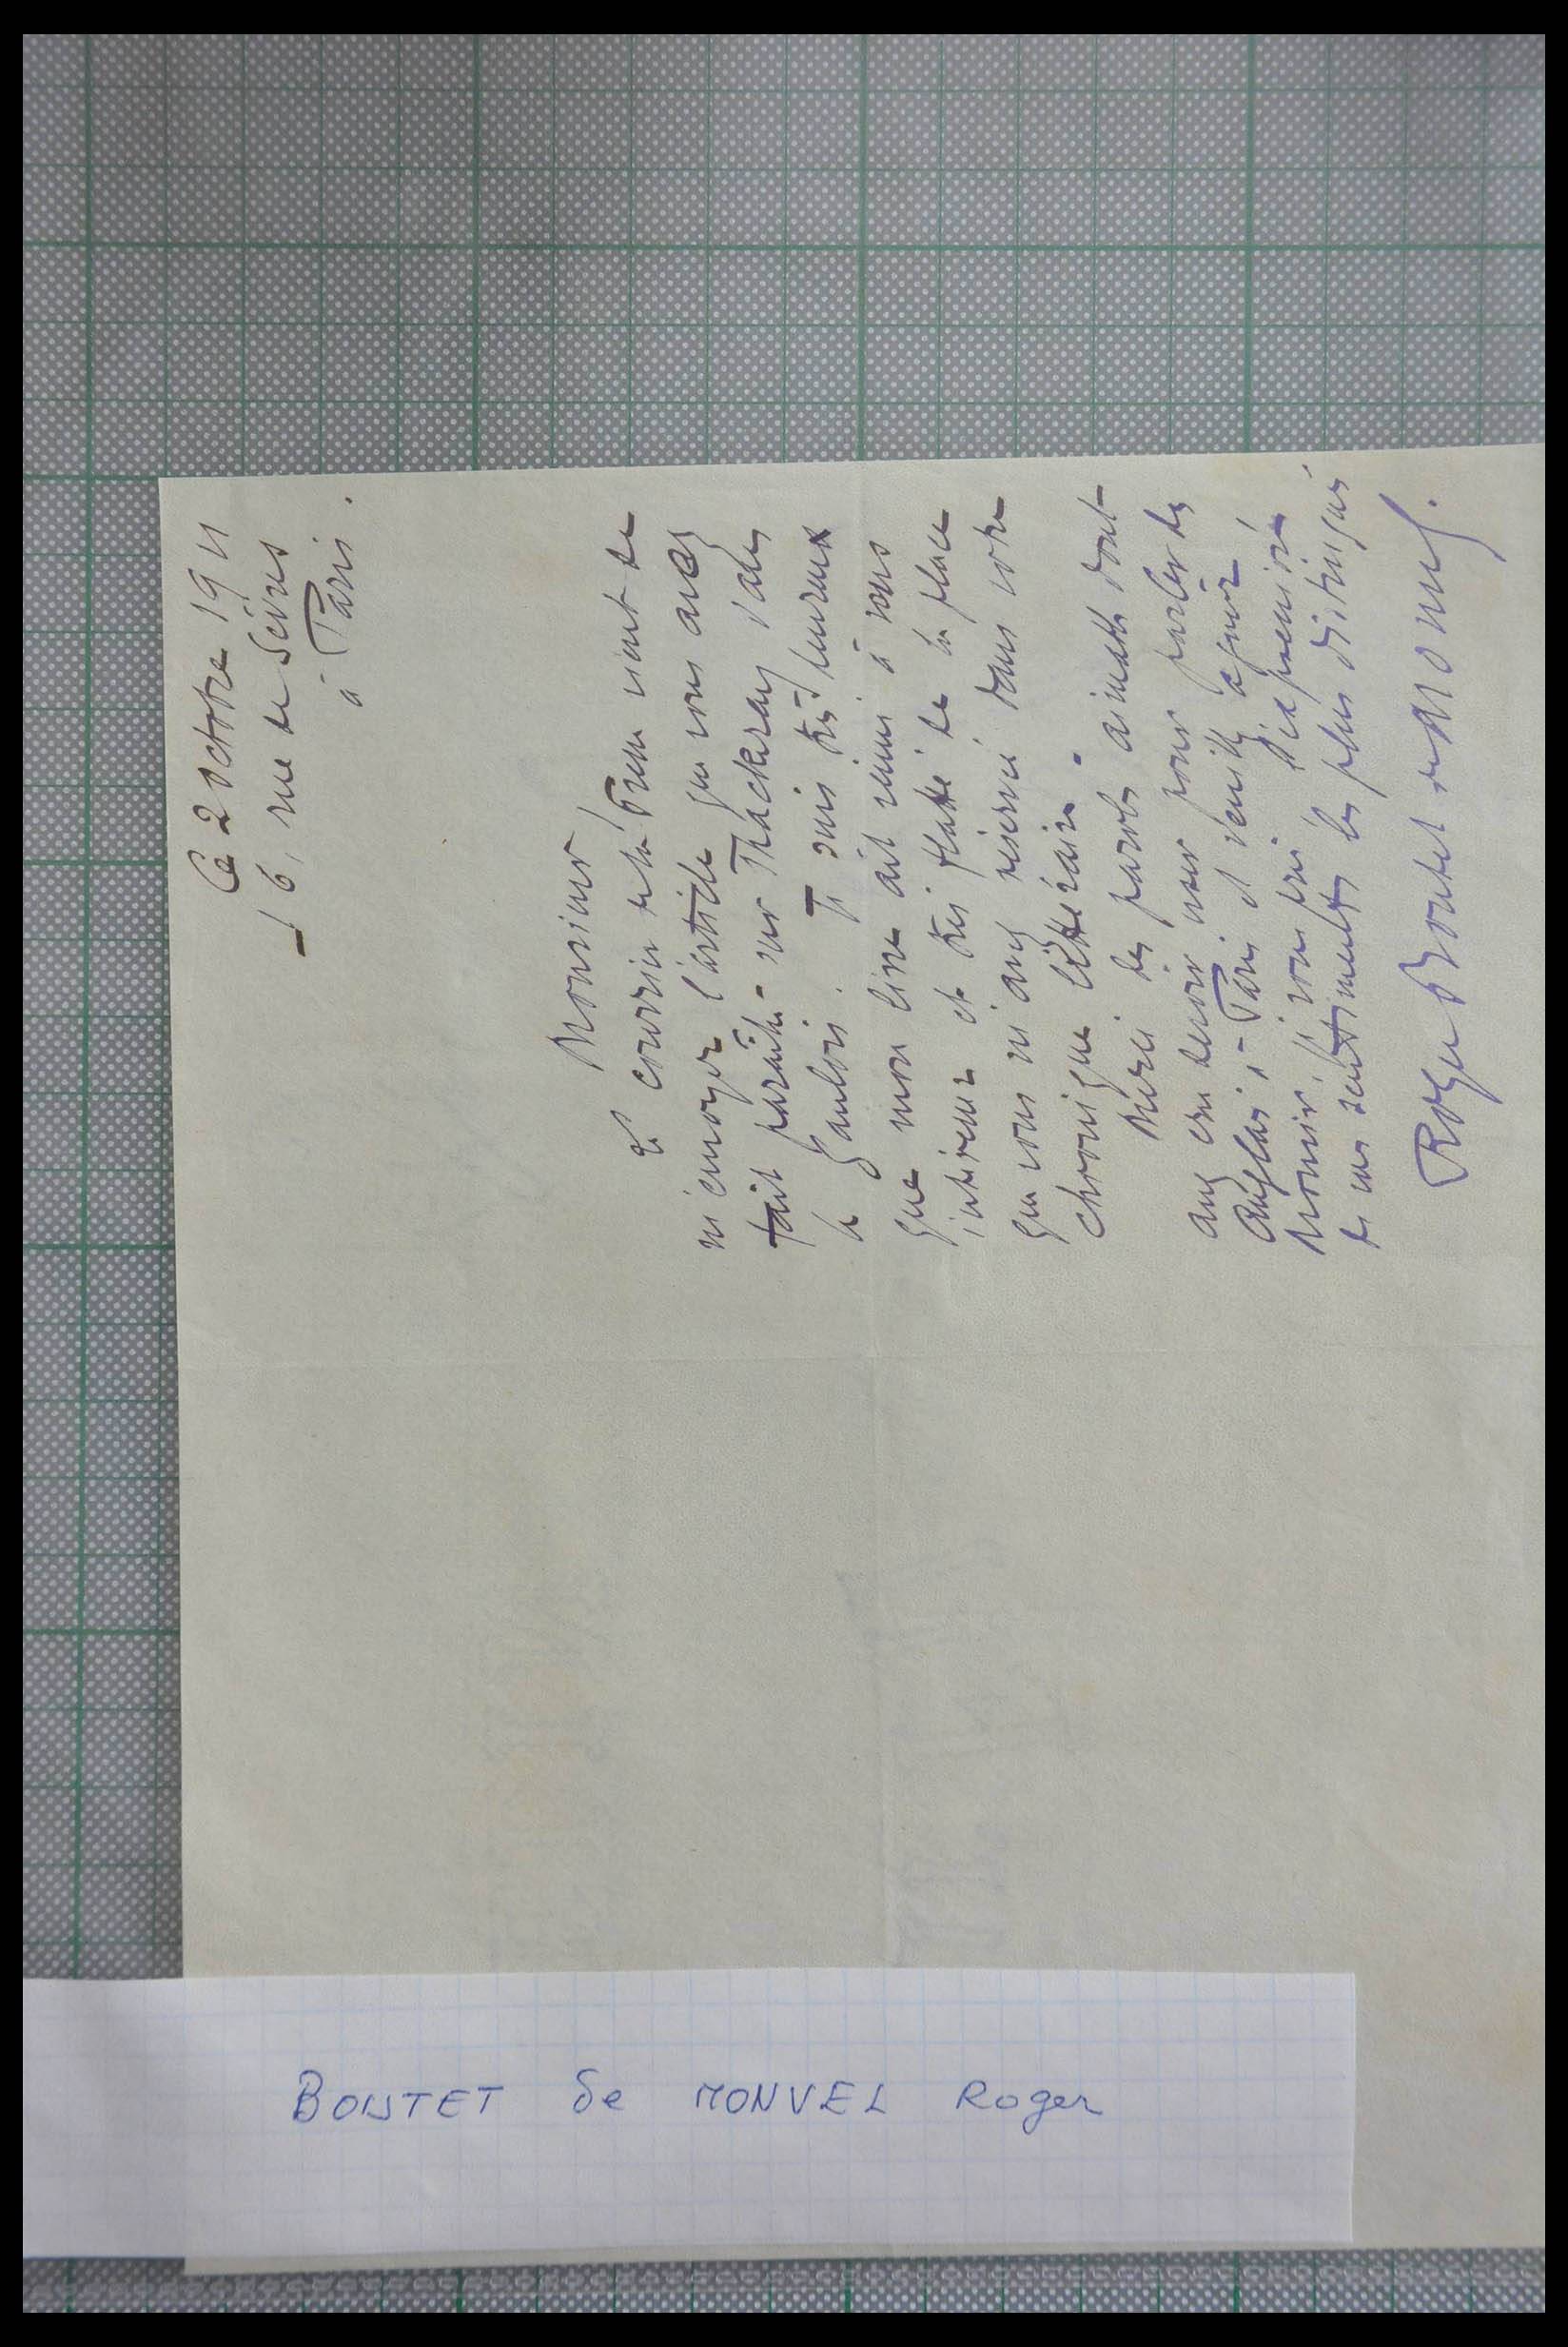 Ce 2 octobre 1911
16, rue de Sèvres
à Paris.
Monsieur,
Le courrier de la Presse vient de
m'envoyer l'article que vous avez
fait paraître sur Thackeray dans
le Gaulois. Je suis très heureux
que mon livre ait réussi à vous
intéresser et très flatté de la place
que vous m'avez réservée dans votre
chronique littéraire.
Merci des paroles aimables dont
avez cru devoir user pour parler des
Anglais à Paris et veuillez agréer
Monsieur, je vous prie l'expression
de mes sentiments les plus distingués
Roger Boutet de Monvel.
BOUTET de MONVEL Roger